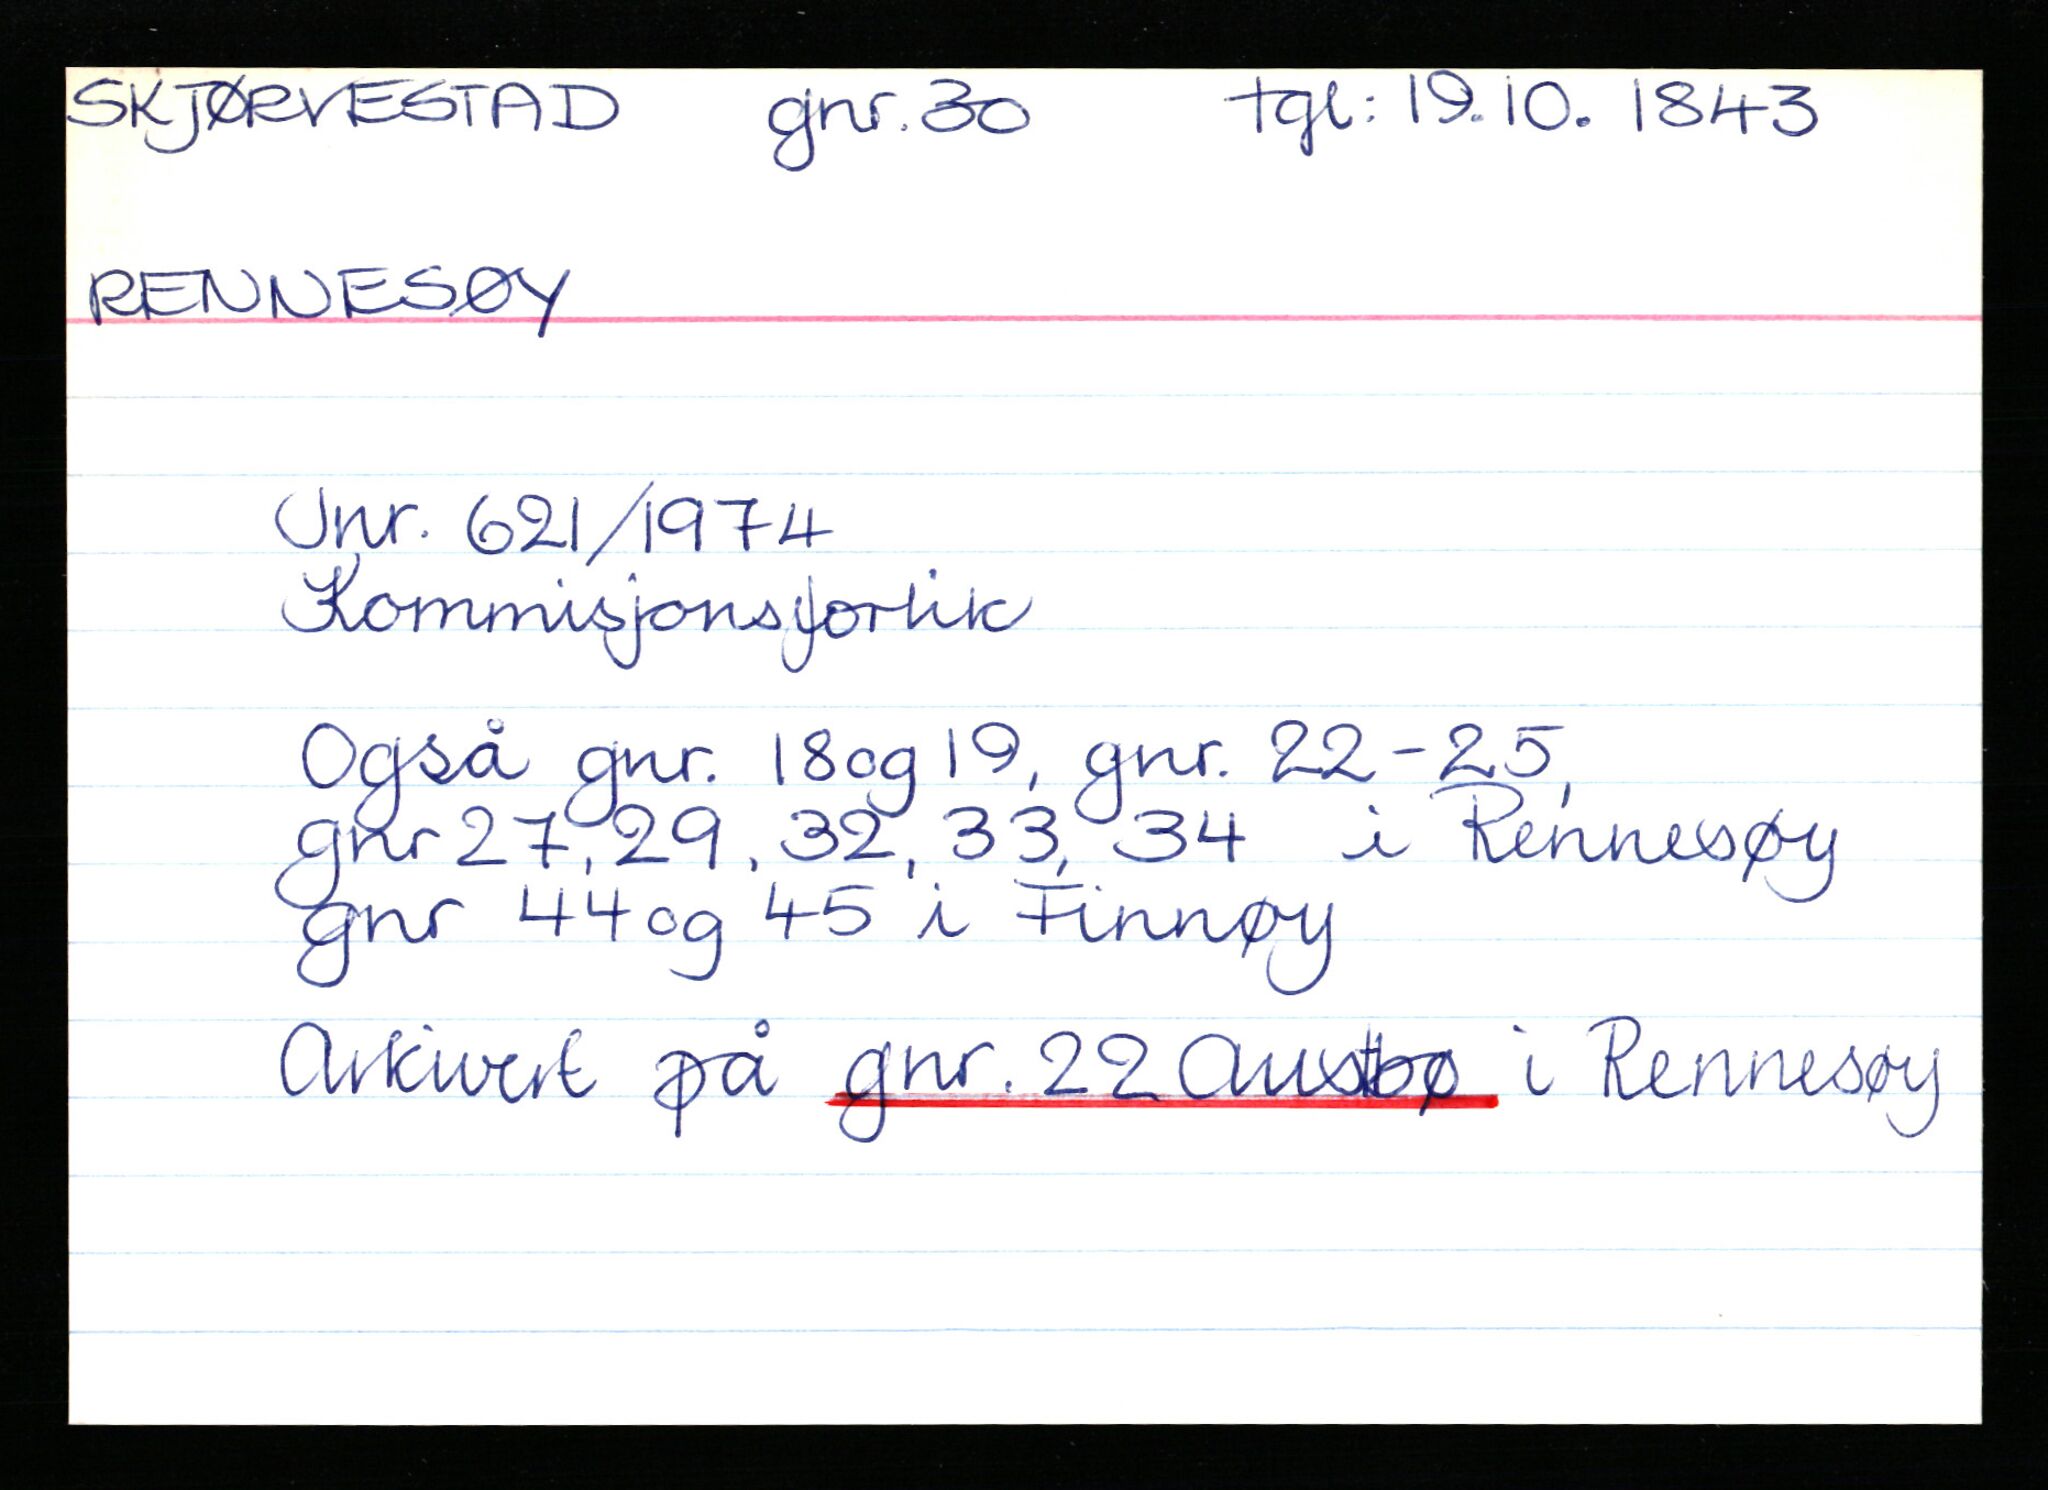 SKJØRVESTAD gnr. 30 tgl: 19.10. 1843
RENNESØY
Jnr. 621/1974
Kommisjonsforlik
Også gnr. 18 og 19, gnr. 22-25,
gnr 27, 29, 32, 33, 34 i Rennesøy
gnr 44 og 45 i Finnøy
Arkivert på gnr. 22 Austbø i Rennesøy